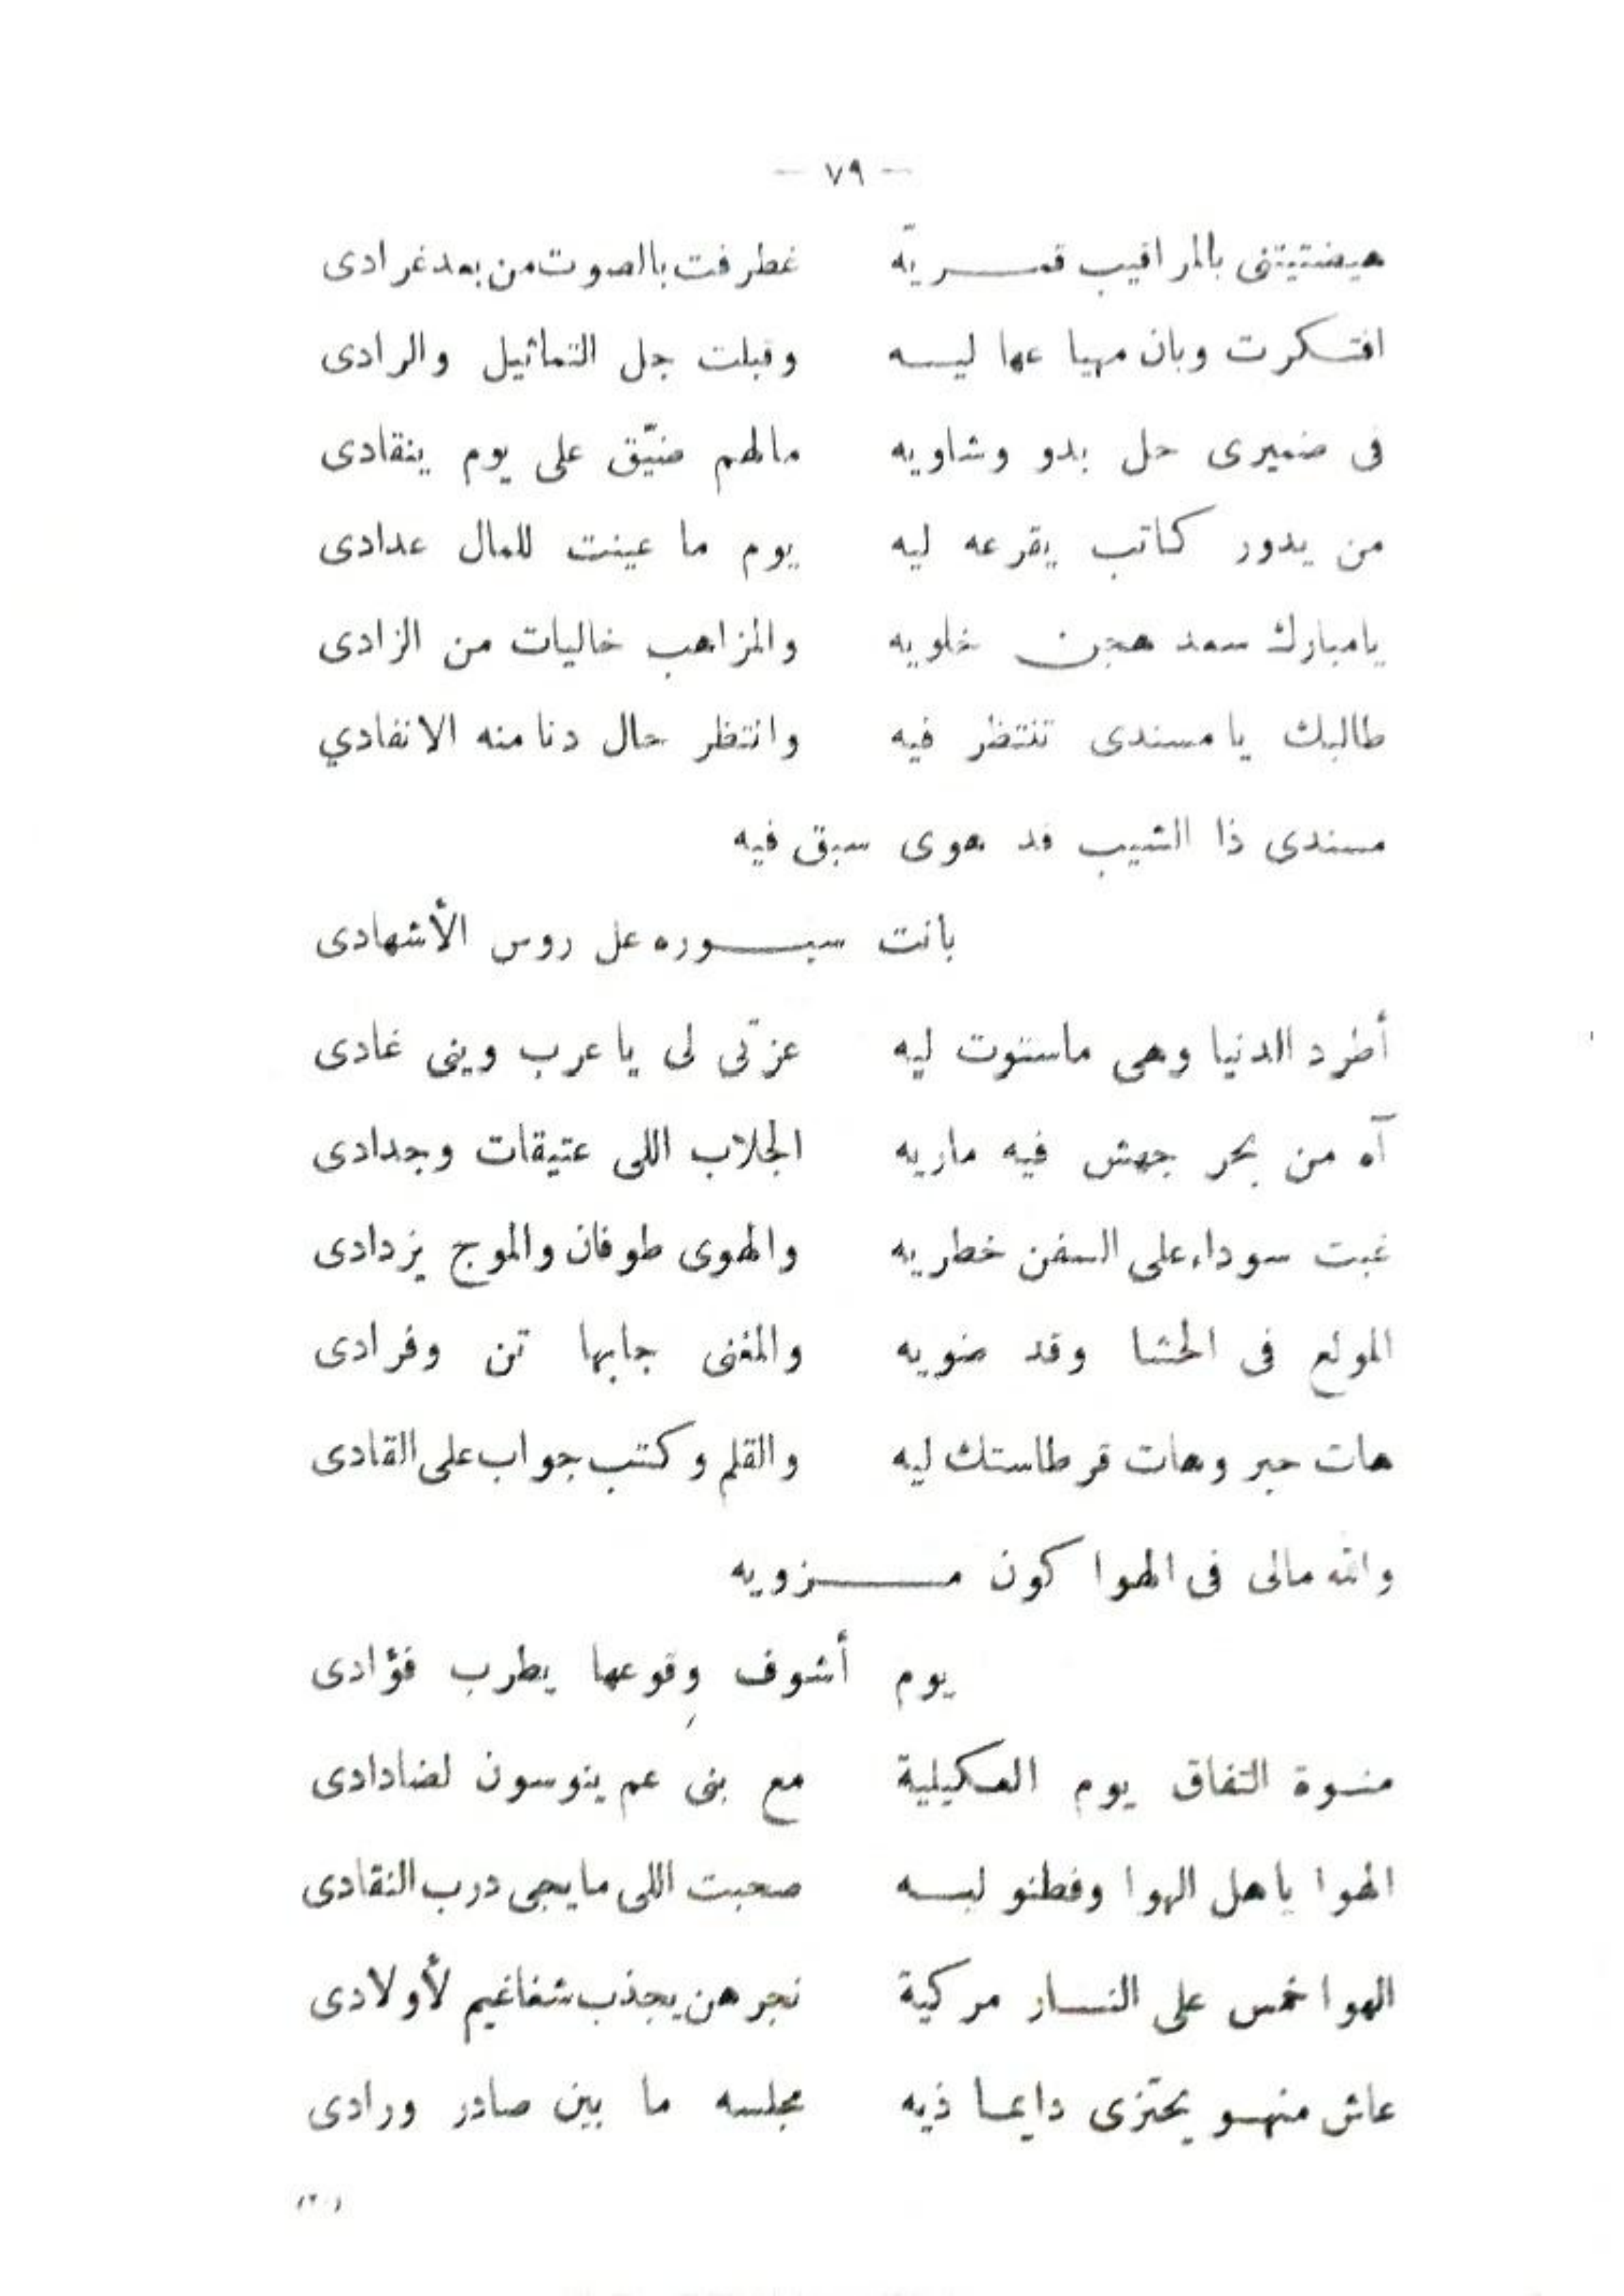 — ٧٩ —
هيضتيتنى بالمراقيب قمـــرية غطرفت بالصوت من بعد غرادى
افتــكرت وبان مهيا عما ليــه وقبلت جل التماثيل والرادى
فى ضميرى حل بدو وشاويه مالهم ضيّق على يوم ينقادى
من يدور كاتب يقرعه ليه يوم ما عينت للمال عدادى
يامبارك سعد هجن خلويه والمزاهب خاليات من الزادى
طالبك يا مسندى تنتظر فيه وانتظر حال دنا منه الانفادي
مسندى ذا الشيب قد هوى سبق فيه
بانت سبــوره عل روس الأشهادى
أطرد الدنيا وهى ماستوت ليه عزتى لى يا عرب وينى غادى
آه من بحر جهش فيه ماريه الجلاّب اللى عتيقات وجدادى
غبت سوداء على السفن خطريه والهوى طوفان والموج يزدادى
المولع فى الحشا وقد ضويه والمغنى جابها تن وفرادى
هات حبر وهات قرطاستك ليه والقلم وكتب جواب على القادى
والله مالى فى الهوا كون مــزويه
يوم أشوف وِقوعها يطرب فؤادى
منسوة التفاق يوم العكيلية مع بنى عم ينوسون لضدادى
الهوا ياهل الهوا وفطنو لبــه صحبت اللى مايجى درب النقادى
الهوا خمس على النسـار مركية نجرهن يجذب شفاغيم لأولادى
عاش منهـو يحتزى دايمـا ذيه مجلسه ما بين صادر ورادى